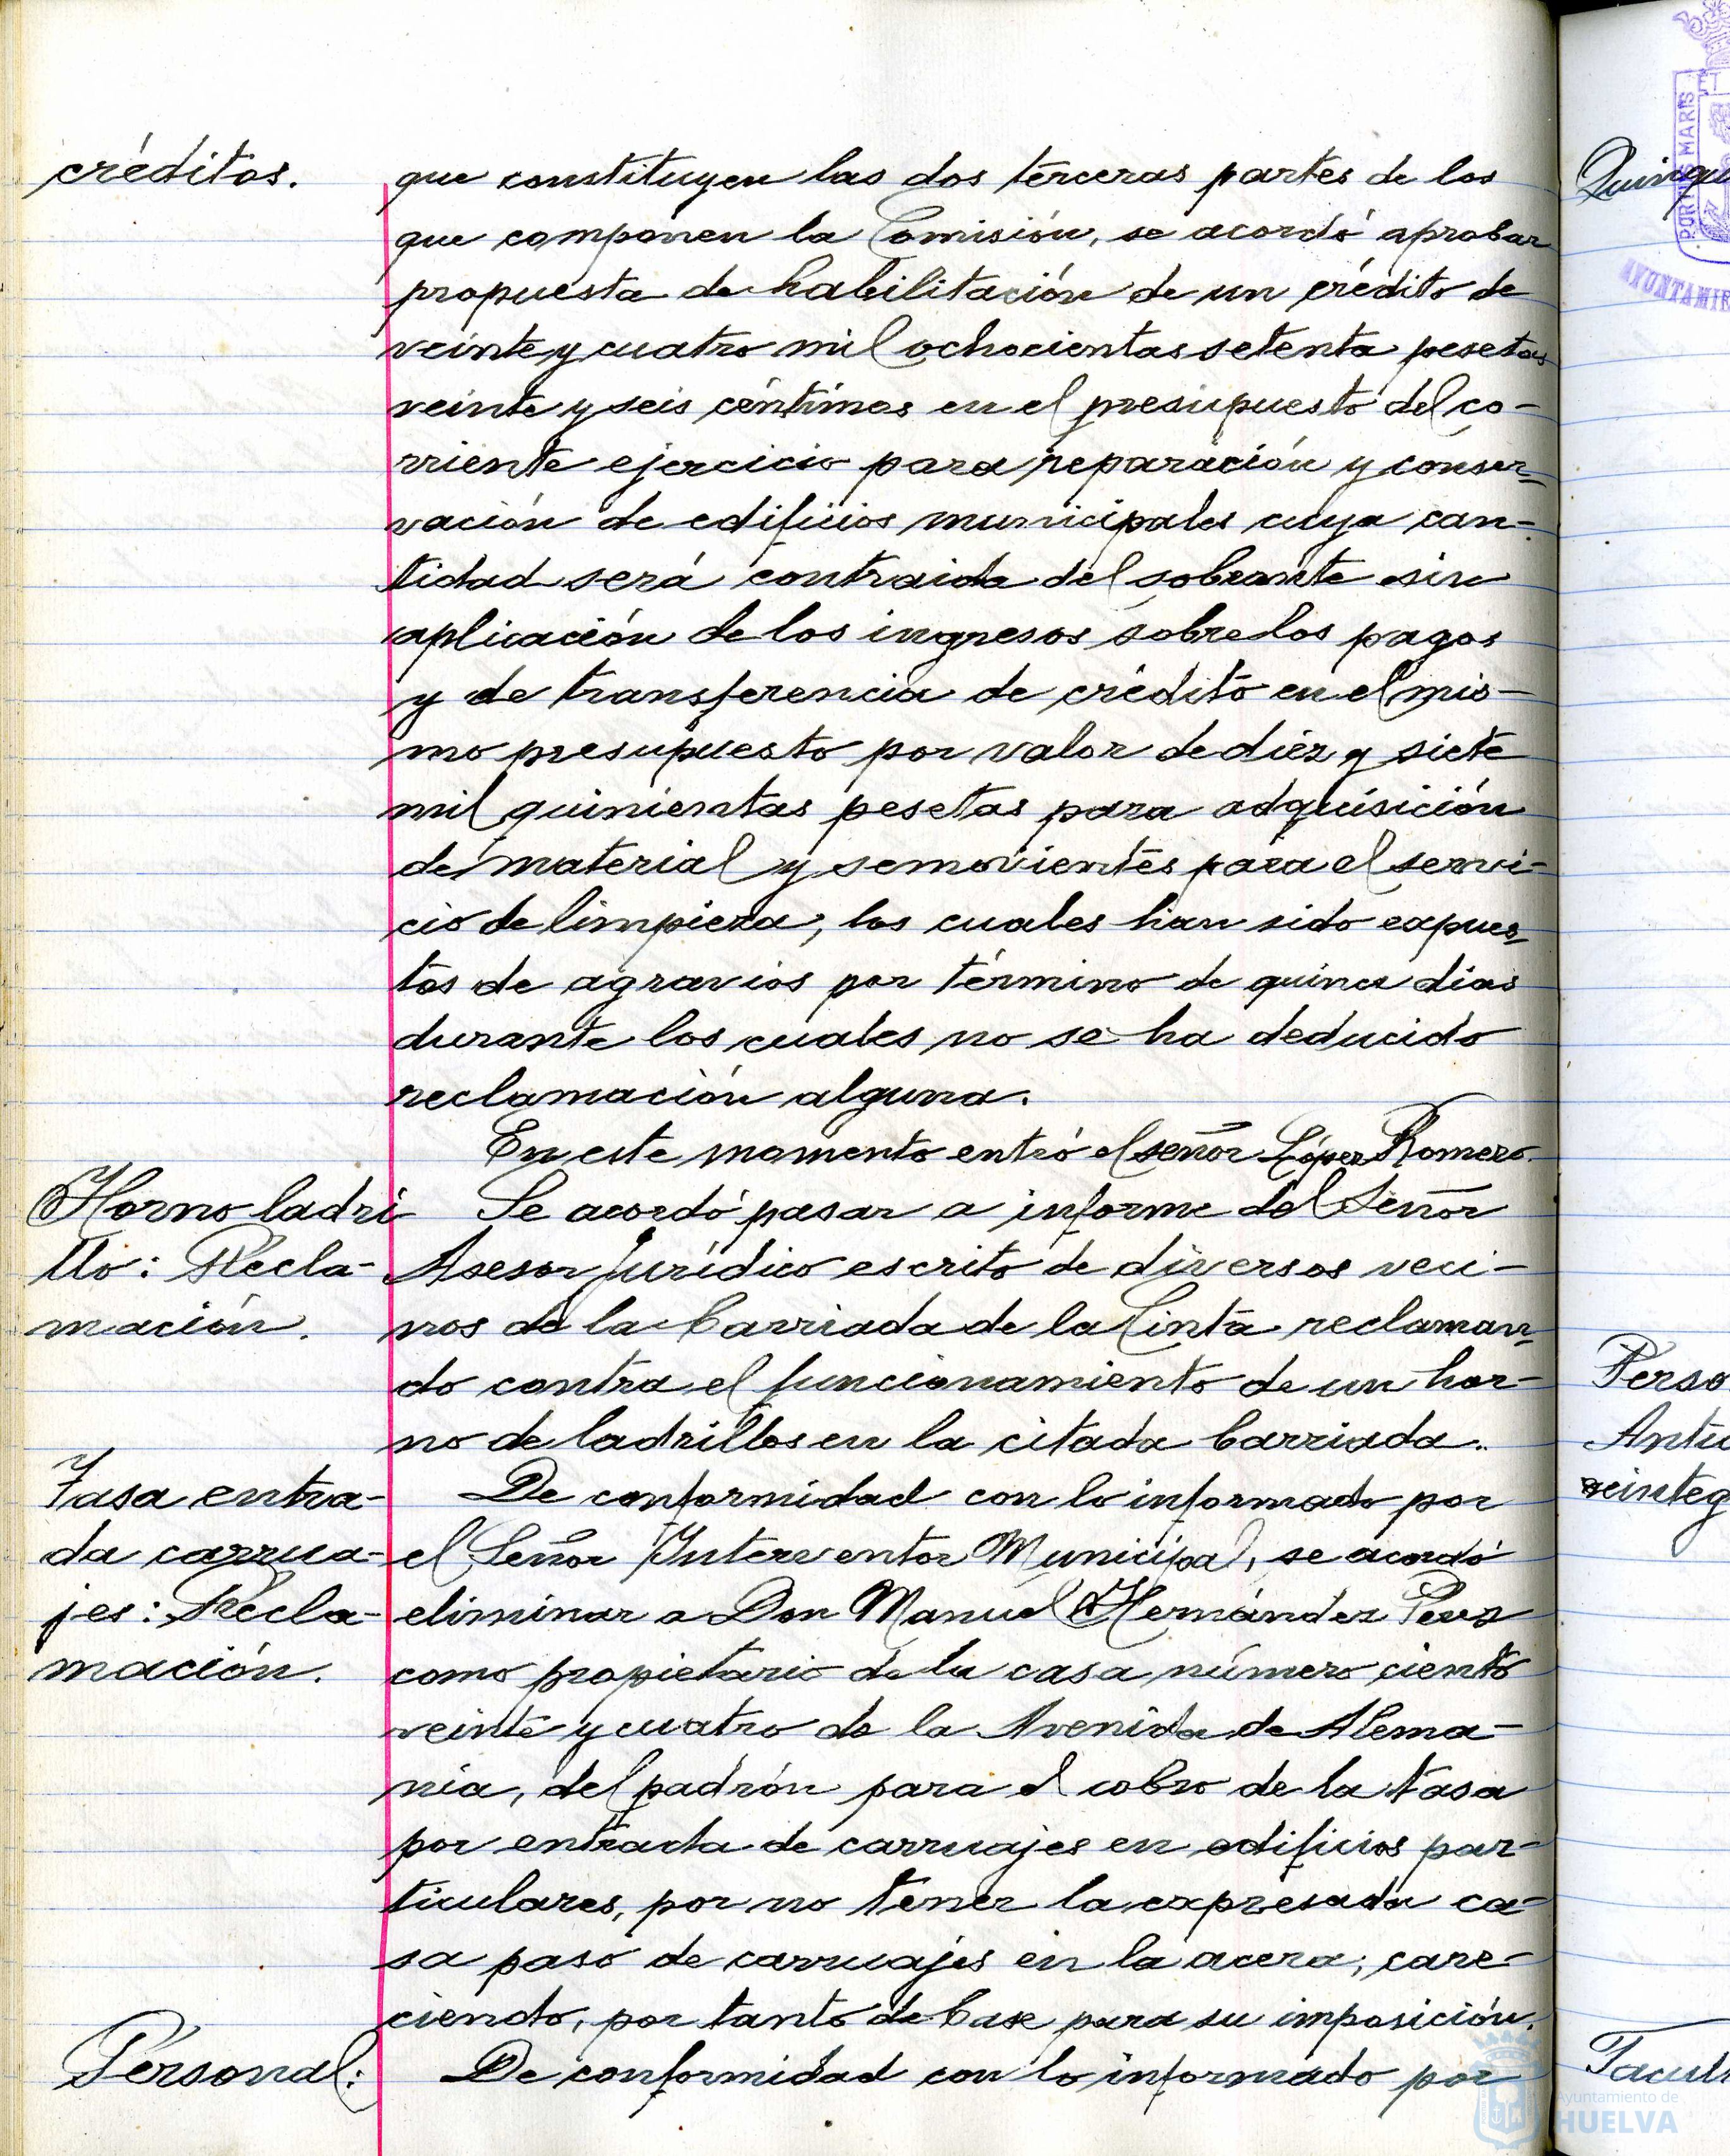 créditos.
que constituyen las dos terceras partes de los
que componen la Comisión, se acordó aprobar
propuesta de habilitación de un crédito de
veinte y cuatro mil ochocientas setenta pesetas
veinte y seis céntimos en el presupuesto del co-
rriente ejercicio para reparación y conser-
vación de edificios municipales cuya can-
tidad será contraida del sobrante sin
aplicación de los ingresos sobre los pagos
y de transferencia de crédito en el mis-
mo presupuesto por valor de diez y siete
mil quinientas pesetas para adquisición
de material y semovientes para el servi-
cio de limpieza, los cuales han sido expues-
tos de agravios por término de quince dias
durante los cuales no se ha deducido
reclamación alguna.
En este momento entró el señor López Romero.
Horno ladri
llo: Recla-
mación.
Se acordó pasar a informe del Señor
Asesor Jurídico escrito de diversos veci-
nos de la barriada de la Cinta reclaman-
do contra el funcionamiento de un hor-
no de ladrillos en la citada barriada.
Tasa entra-
da carrua-
jes: Recla-
mación.
De conformidad con lo informado por
el Señor Interventor Municipal, se acordó
eliminar a Don Manuel Hernández Perez
como propietario de la casa número ciento
veinte y cuatro de la Avenida de Alema-
nia, del padrón para el cobro de la tasa
por entrada de carruajes en edificios par-
ticulares, por no tener la expresada ca-
sa paso de carruajes en la acera; care-
ciendo, por tanto de base para su imposición.
Personal:
De conformidad con lo informado por
Quinqu
PORTUS MARIS ET
AYUNTAMIE
Perso
Antic
reinteg
Facult
Ayuntamiento de
HUELVA